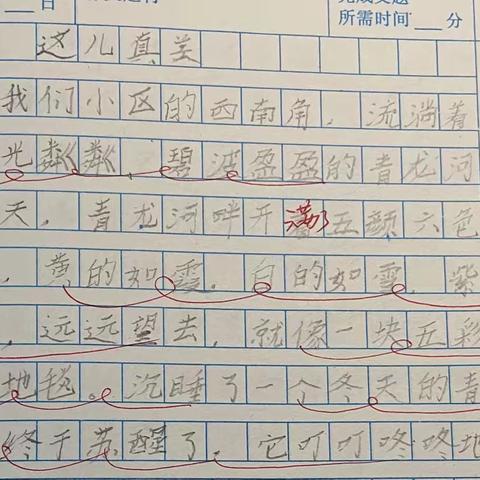 日
所需时间 分
这儿真美
我们小区的西南角，流淌着
光粼粼，碧波盈盈的青龙河
天，青龙河畔开满了五颜六色
，黄的如霞，白的如雪，紫
，远远望去，就像一块五彩
地毯。沉睡了一个冬天的青
终于苏醒了，它叮叮咚咚地